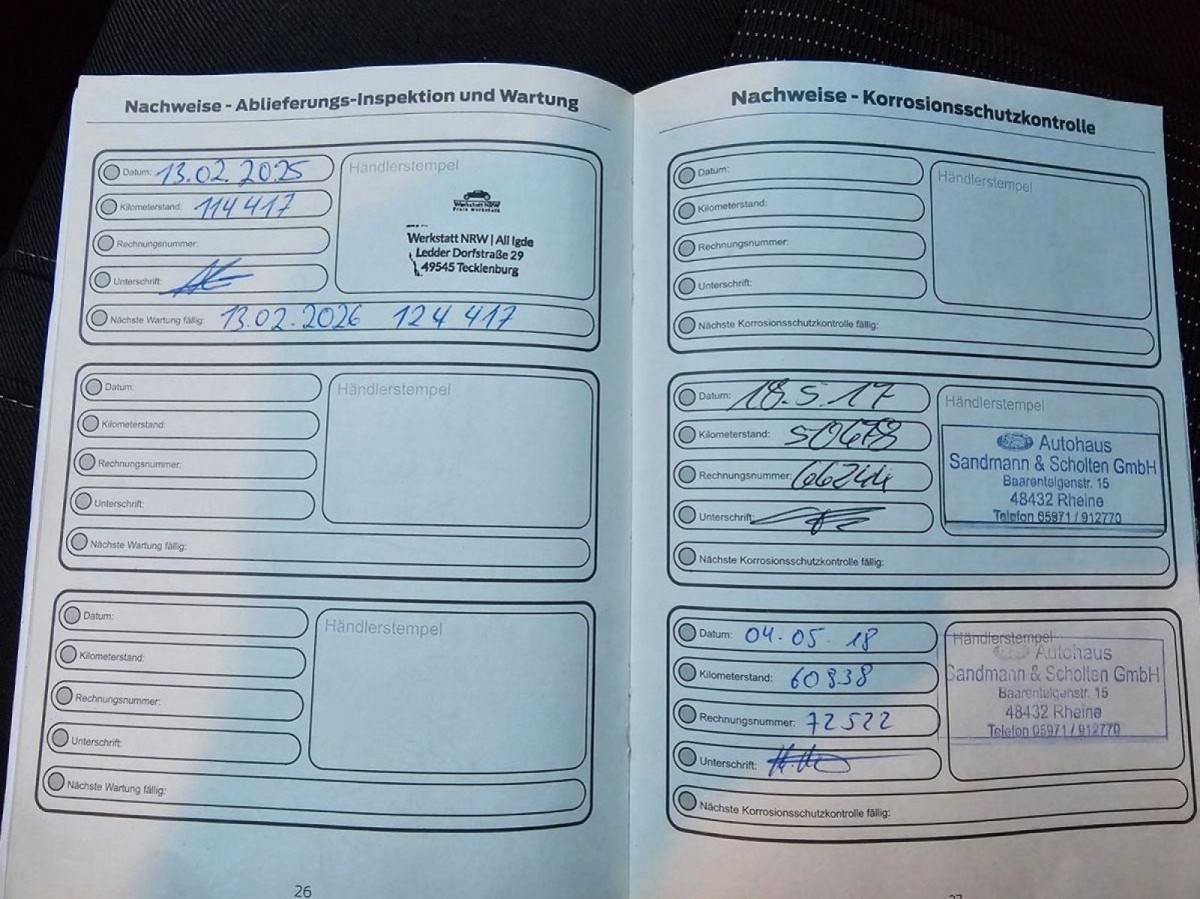 Nachweise - Ablieferungs-Inspektion und Wartung
Datum: 13.02.2025
Kilometerstand: 114417
Rechnungsnummer:
Unterschrift:
Nächste Wartung fällig: 13.02.2026 124417
Händlerstempel
Werkstatt NRW
Freie Werkstatt
Werkstatt NRW | All Igde
Ledder Dorfstraße 29
49545 Tecklenburg
Datum:
Kilometerstand:
Rechnungsnummer:
Unterschrift:
Nächste Wartung fällig:
Händlerstempel
Datum:
Kilometerstand:
Rechnungsnummer:
Unterschrift:
Nächste Wartung fällig:
Händlerstempel
26
Nachweise - Korrosionsschutzkontrolle
Datum:
Kilometerstand:
Rechnungsnummer:
Unterschrift:
Nächste Korrosionsschutzkontrolle fällig:
Händlerstempel
Datum: 18.5.17
Kilometerstand: 50678
Rechnungsnummer: 66244
Unterschrift:
Nächste Korrosionsschutzkontrolle fällig:
Händlerstempel
Autohaus
Sandmann & Scholten GmbH
Baarentelgenstr. 15
48432 Rheine
Telefon 05971 / 912770
Datum: 04.05.18
Kilometerstand: 60838
Rechnungsnummer: 72522
Unterschrift:
Nächste Korrosionsschutzkontrolle fällig:
Händlerstempel
Autohaus
Sandmann & Scholten GmbH
Baarentelgenstr. 15
48432 Rheine
Telefon 05971 / 912770